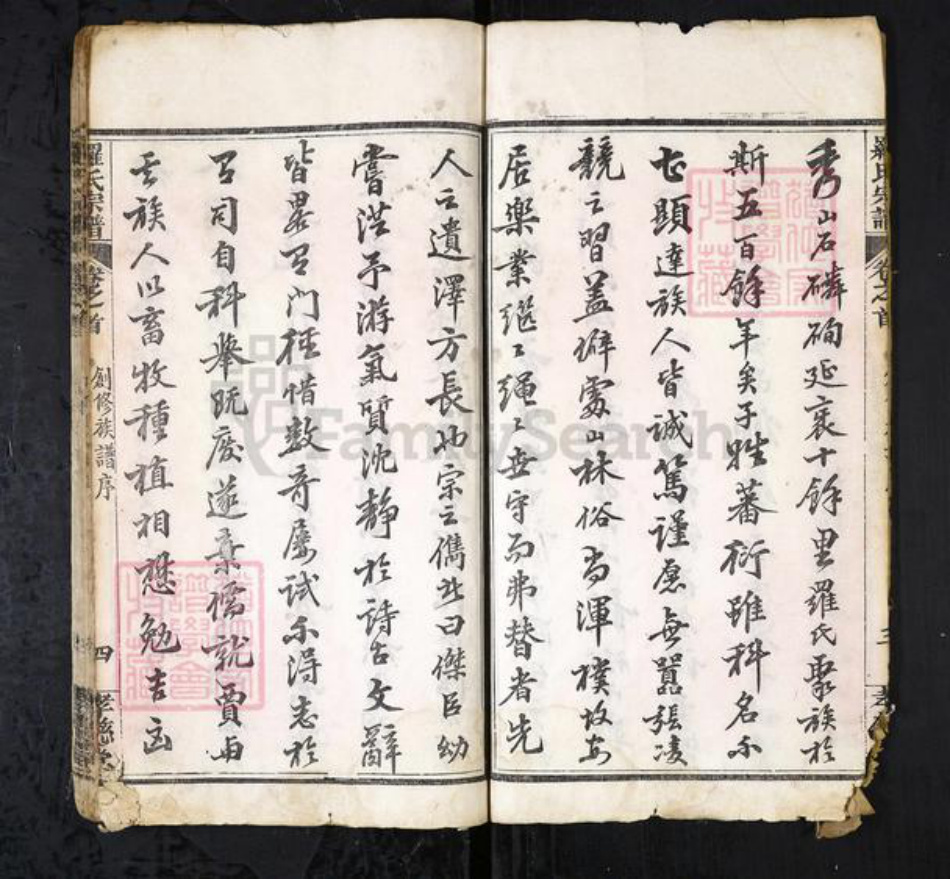 羅氏宗譜
卷之首
三
秀山石磷砌延袤十餘里羅氏聚族於
斯五百餘年矣子姓蕃衍雖科名不
甚顯達族人皆誠篤謹愿無囂張凌
競之習蓋僻處山林俗尚渾樸故安
居樂業繼〻繩〻世守而弗替者先
人之遺澤方長也宗之儁北曰傑臣幼
嘗從予游氣質沈靜於詩古文辭
皆畧有門徑惜數奇屢試不得志於
有司自科舉既廢遂棄儒就賈而
與族人以畜牧種植相懋勉吉凶
羅氏宗譜
卷之首
創修族譜序
四
FamilySearch